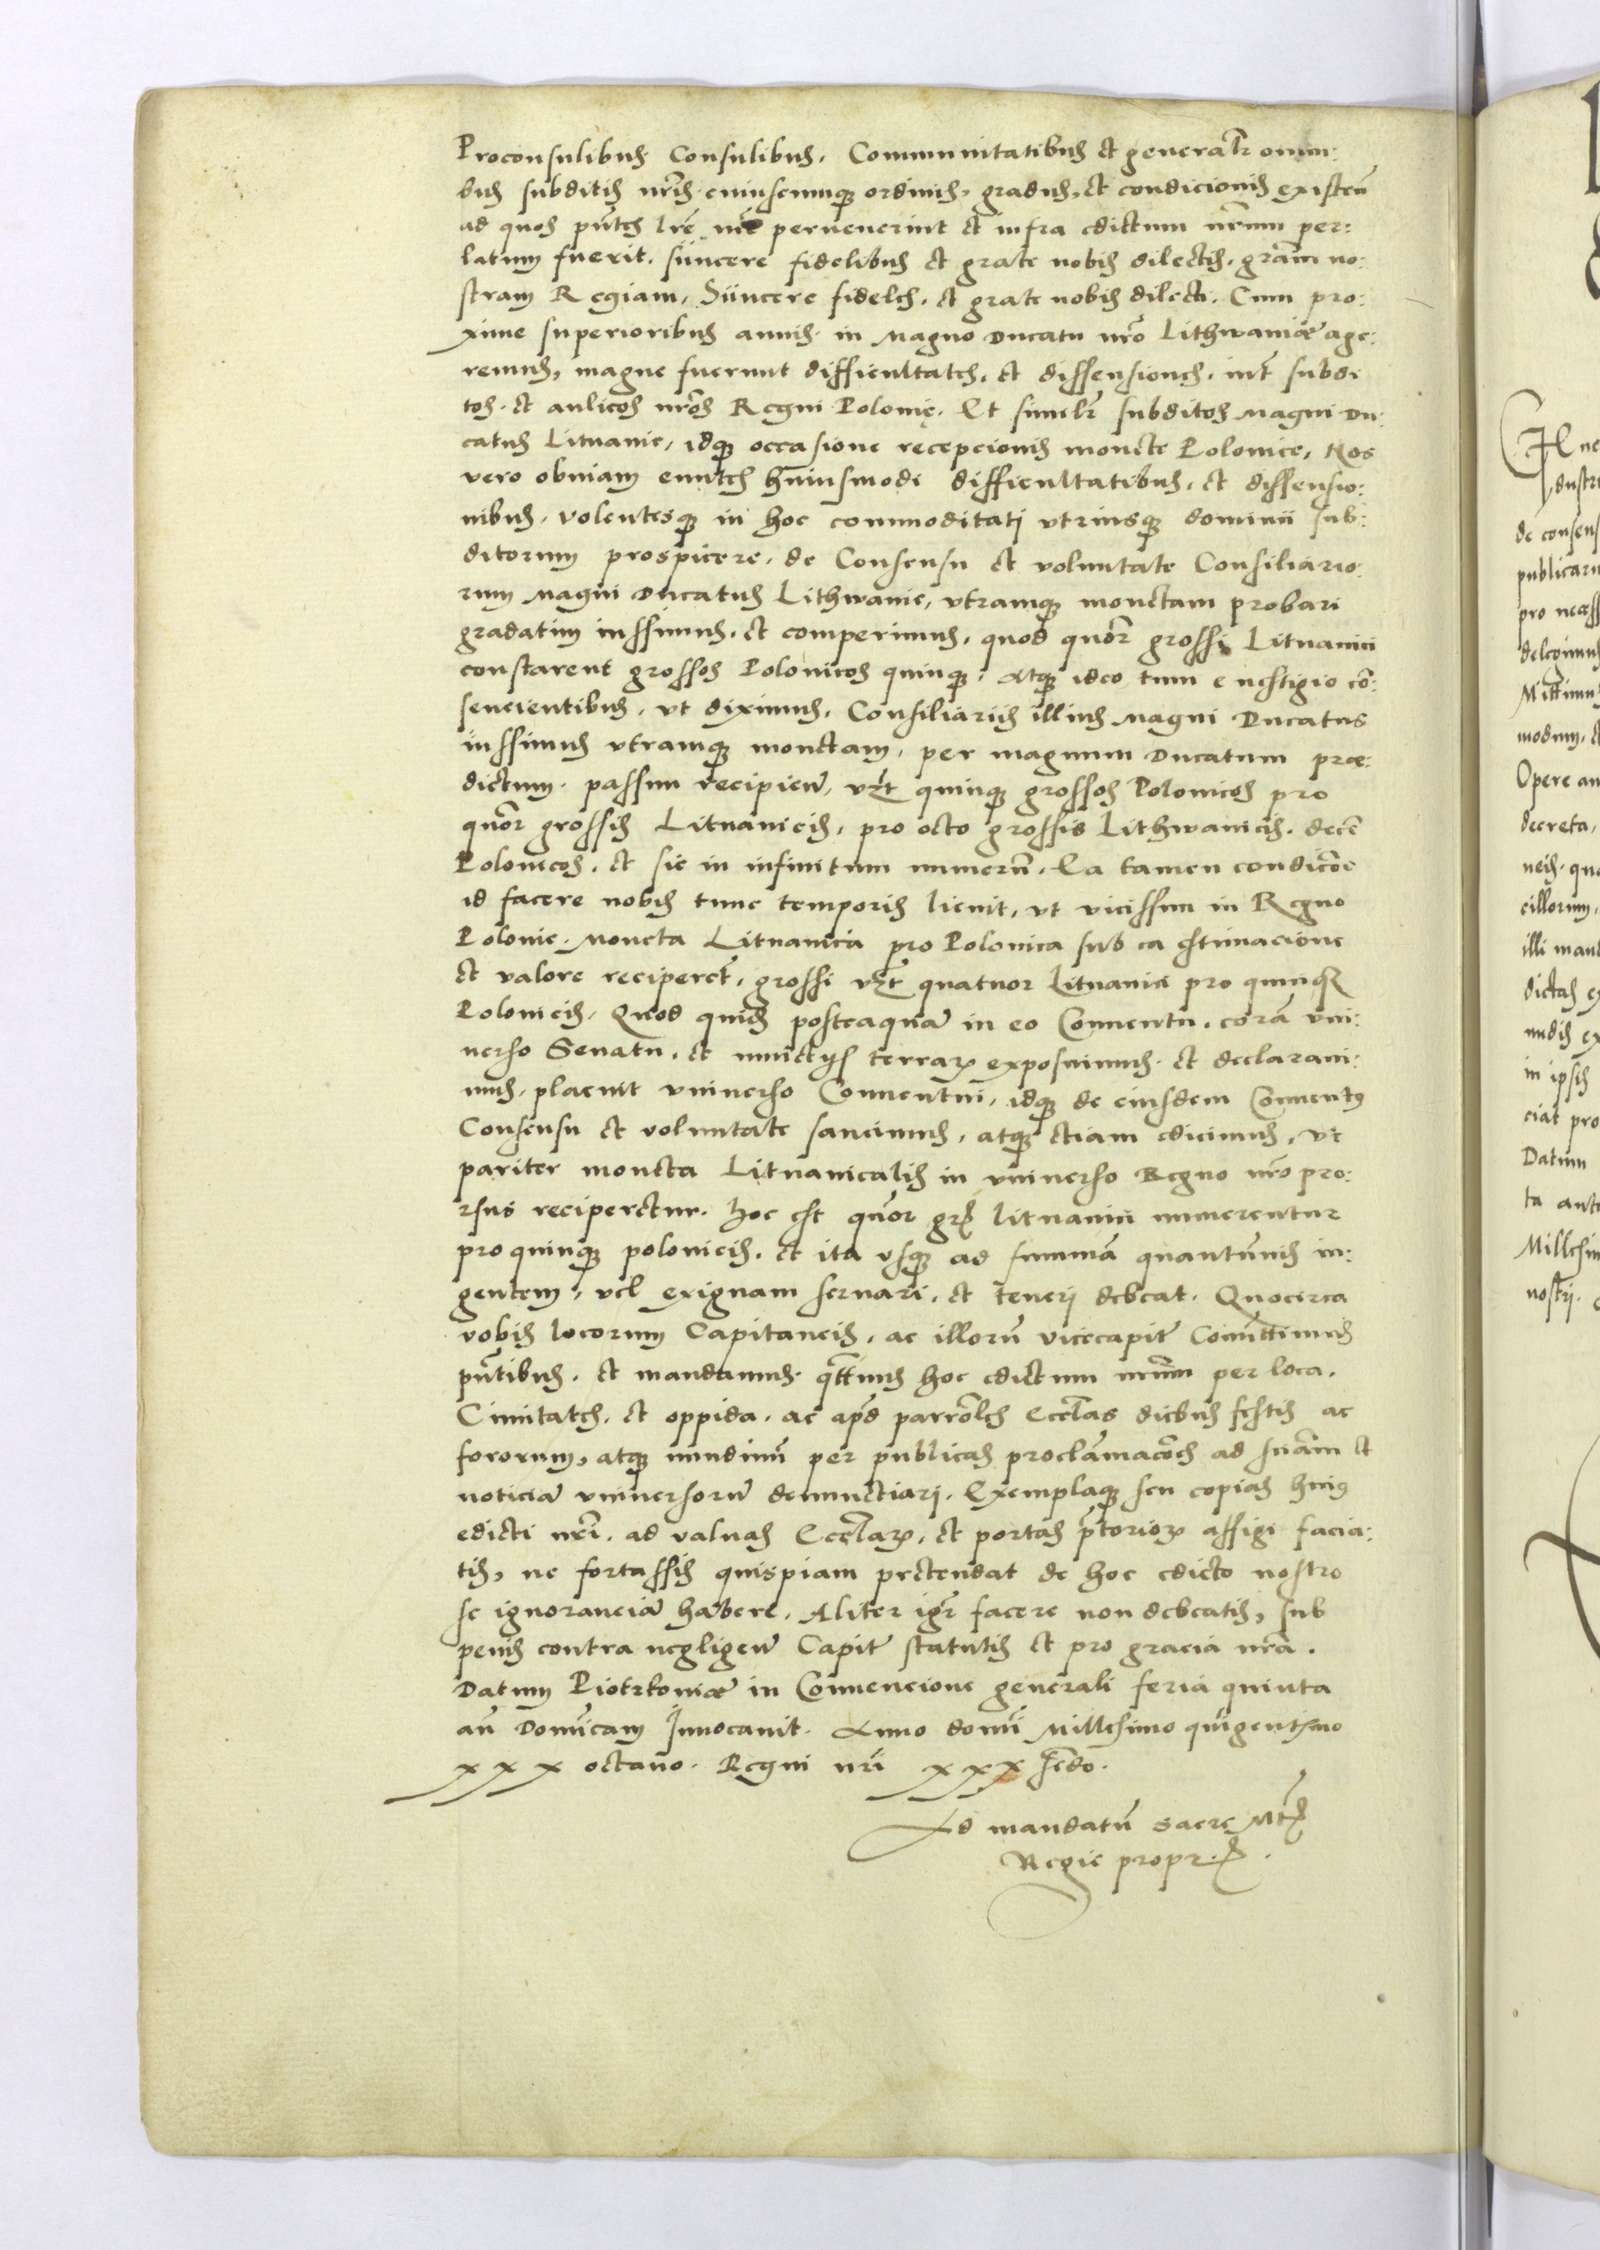 Proconsulibus Consulibus, Communitatibus et generalr omni:
bus subditis nrīs cuiuscunque ordinis, gradus, et condicionis existen̄
ad quos pn̄tes lrē nrē pervenerint et infra edictum nrūm per:
latum fuerit. sÿncere fidelibus et grate nobis dilectis, grām no:
stram Regiam, Sÿncere fideles, et grate nobis dilecti. Cum pro:
xime superioribus annis in Magno Ducatu nrō Lithwaniæ age:
remus, magne fuerunt difficultates, et dissensiones, int̄ subdi
tos et aulicos nrōs Regni Polonię. Et similr subditos Magni Du:
catus Lituanie, idque occasione recepcionis monete Polonice, Nos
vero obuiam euntes huiusmodi difficultatibus, et dissensio:
nibus, volentesque in hoc commoditatj vtriusque dominii sub:
ditorum prospicere, de Consensu et voluntate Consiliario:
rum Magni Ducatus Lithwanie, vtramque monetam probari
gradatim iussimus, et comperimus, quod quōr grossi Lituanici
constarent grossos Polonicos quinque. Atque ideo tum e uestigio cō:
sencientibus, vt diximus, Consiliariis illius Magni Ducatus
iussimus vtramque monetam, per magnum Ducatum præ:
dictum passim recipien̄, vzt quinque grossos Polonicos pro
quōr grossis Lituanicis, pro octo grossis Lithwanicis, decē
Polonicos, et sic in infinitum numerū. Ea tamen condicōe
id facere nobis tunc temporis licuit, vt vicissim in Regno
Polonie Moneta Lituanica pro Polonica sub ea estimacione
et valore reciperet̄, grossi vzt quatuor Lituanici pro quinque
Polonicis. Quod quidē posteaquā in eo Conuentu, corā vni:
uerso Senatu, et nunctijs terrarum exposuimus et declaraui:
mus, placuit vniuerso Conuentui, idque de eiusdem Conuentus
Consensu et voluntate sancimus, atque etiam edicimus, vt
pariter moneta Lituanicalis in vniuerso Regno nrō pro:
rsus reciperetur. hoc est quōr grs lituanici numerentur
pro quinque polonicis, et ita vsque ad summā quantumuis in:
gentem, vel exiguam seruari, et tenerj debeat. Quocirca
vobis locorum Capitaneis, ac illorū vicecapit̄ Comittimus
pn̄tibus, et mandamus qtēnus hoc edictum nrūm per loca,
Ciuitates, et oppida, ac apd parrōles Eccl̄as diebus festis ac
fororum, atque nundinū per publicas proclāmacōes ad scīam et
noticiā vniuersorū denunctiarj. Exemplaque seu copias huius
edicti nrī, ad valuas Eccl̄arum, et portas p̄toriorum affigi facia:
tis, ne fortassis quispiam pretendat de hoc edicto nostro
se ignoranciā habere. Aliter igr facere non debeatis, sub
penis contra negligen̄ Capit̄ statutis et pro gracia nrā.
Datum Piotrkouiæ in Conuencione generali feria quinta
an̄ Domīcam Inuocauit. Anno domī Millesimo quīgentesimo
xxx octauo. Regni nrī xxx scdo.
Ad mandatū sacrę Mtis
Regie propr.